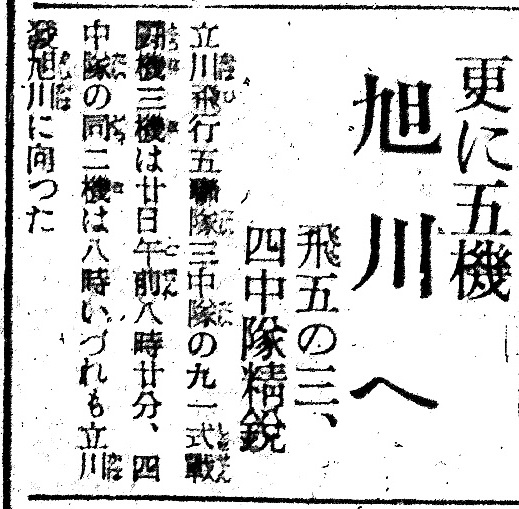 更に五機
旭川へ
飛五の三、
四中隊精鋭
立川飛行五聯隊三中隊の九一式戰
鬪機三機は廿日午前八時廿分、四
中隊の同二機は八時いづれも立川
發旭川に向つた